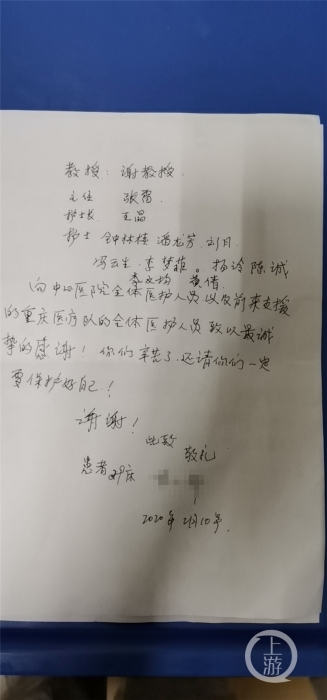 教授：谢教授
主任 张智
护士长 王晶
护士 钟林桂 潘龙芳 刘月
冯云生 李梦菲。杨泠 陈诚
李文均 黄倩
向中心医院全体医护人员以及前来支援
的重庆医疗队的全体医护人员致以最诚
挚的感谢！你们辛苦了，还请你们一定
要保护好自己！
谢谢！
此致
敬礼
患者 床
2020年2月10号
上游